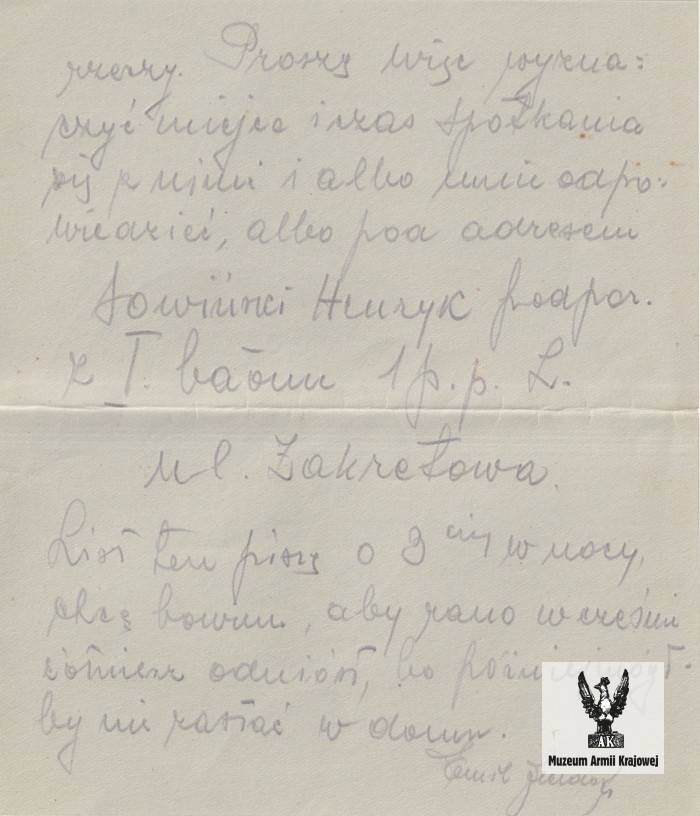 rzeczy. Proszę więc wyzna=
czyć miejsce i czas spotkania
się z nimi i albo mnie odpo=
wiedzieć, albo pod adresem
Sowiński Henryk podpor.
z I. baonu 1 p. p. L.
ul. Zakretowa.
List ten piszę o 3 ciej w nocy,
chcę bowiem, aby rano wcześnie
żołnierz odniósł, bo później mógł=
by nie zastać w domu.
Emil
AK
Muzeum Armii Krajowej